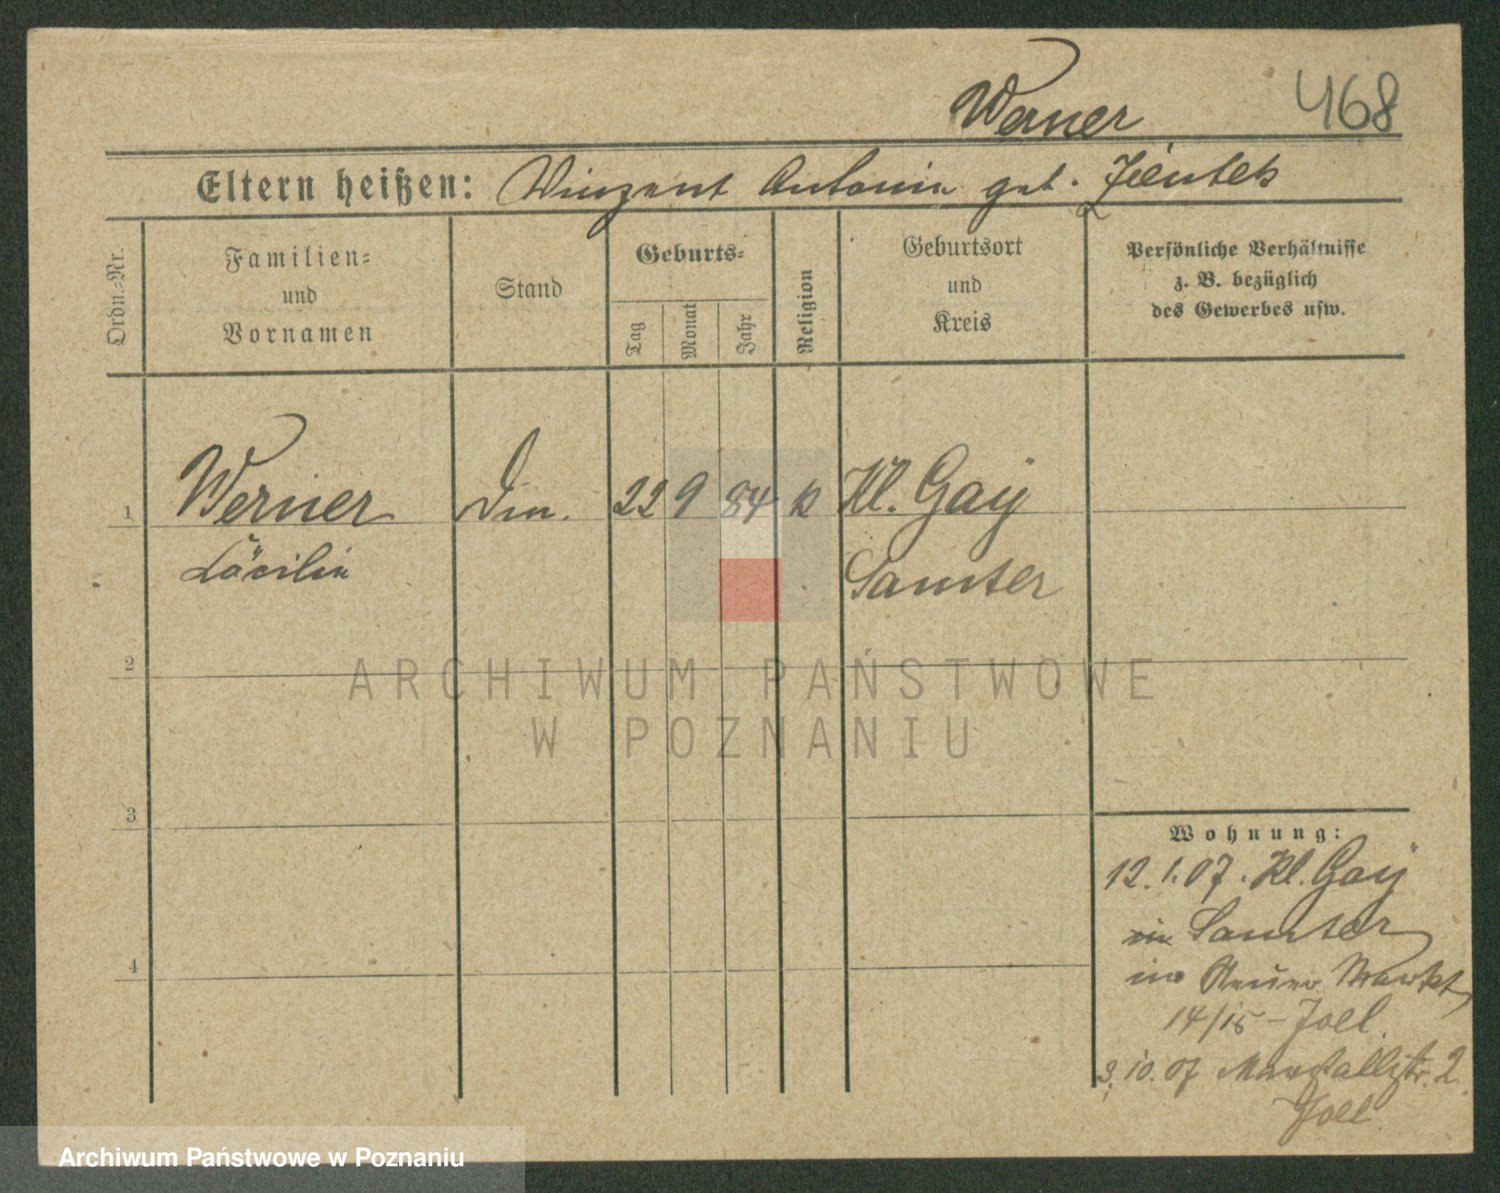 Werner 468
Eltern heißen: Vinzent Antonie geb. Zientek
Ordn.-Nr.
Familien-
und
Vornamen
Stand
Geburts-
Tag
Monat
Jahr
Religion
Geburtsort
und
Kreis
Persönliche Verhältnisse
z. B. bezüglich
des Gewerbes usw.
1 Werner Dm. 22 9 84 k Kl. Gay
Cäcilie Samter
2
3
4
Wohnung:
12.1.07. Kl. Gay
in Samter
Neuer Markt
14/15 - Joel.
3.10.07 Marstallstr. 2
Joel
ARCHIWUM PAŃSTWOWE
W POZNANIU
Archiwum Państwowe w Poznaniu